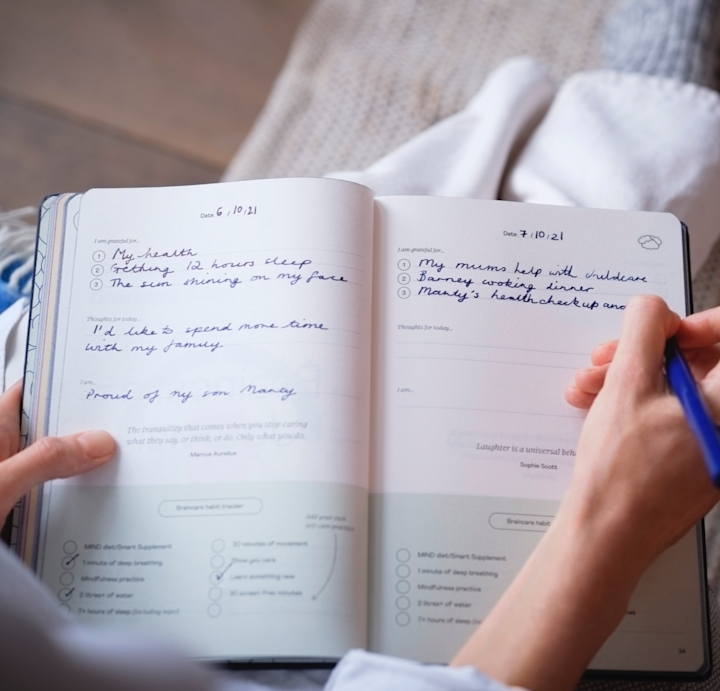 Date 6 / 10 / 21
I am grateful for...
1 My health
2 Getting 12 hours sleep
3 The sun shining on my face
Thoughts for today...
I'd like to spend more time
with my family
I am...
Proud of my son Manty
The tranquility that comes when you stop caring
what they say, or think, or do. Only what you do.
Marcus Aurelius
Braincare habit tracker
Add your own
self-care practice
MIND diet/Smart Supplement
1 minute of deep breathing
Mindfulness practice
2 litres+ of water
7+ hours of sleep (including naps)
30 minutes of movement
Show you care
Learn something new
30 screen-free minutes
Date 7 / 10 / 21
I am grateful for...
1 My mums help with childcare
2 Barney cooking dinner
3 Manty's health checkup and
Thoughts for today...
I am...
Laughter is a universal
Sophie Scott
Braincare habit
MIND diet/Smart Supplement
1 minute of deep breathing
Mindfulness practice
2 litres+ of water
7+ hours of sleep